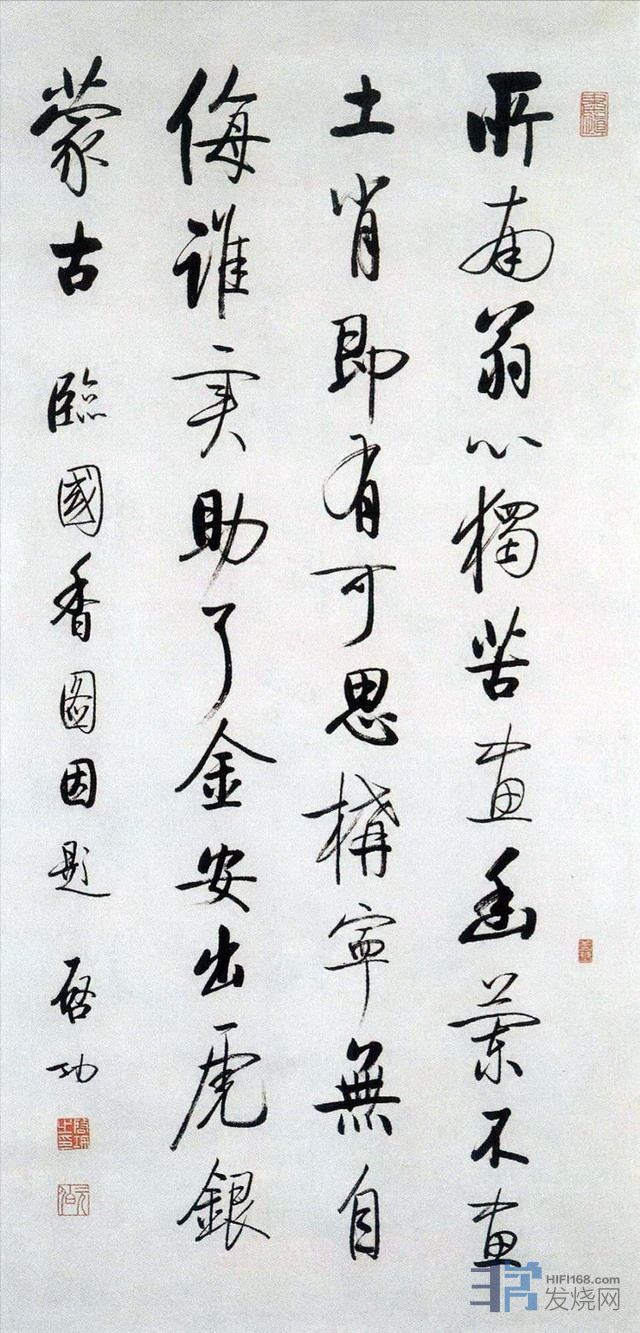 所南翁心獨苦畫幽蘭不畫
土肖即有可思構寧無自
侮誰实助了金安出虎銀
蒙古 臨國香圖因題 啓功
HIFI168.com
发烧网